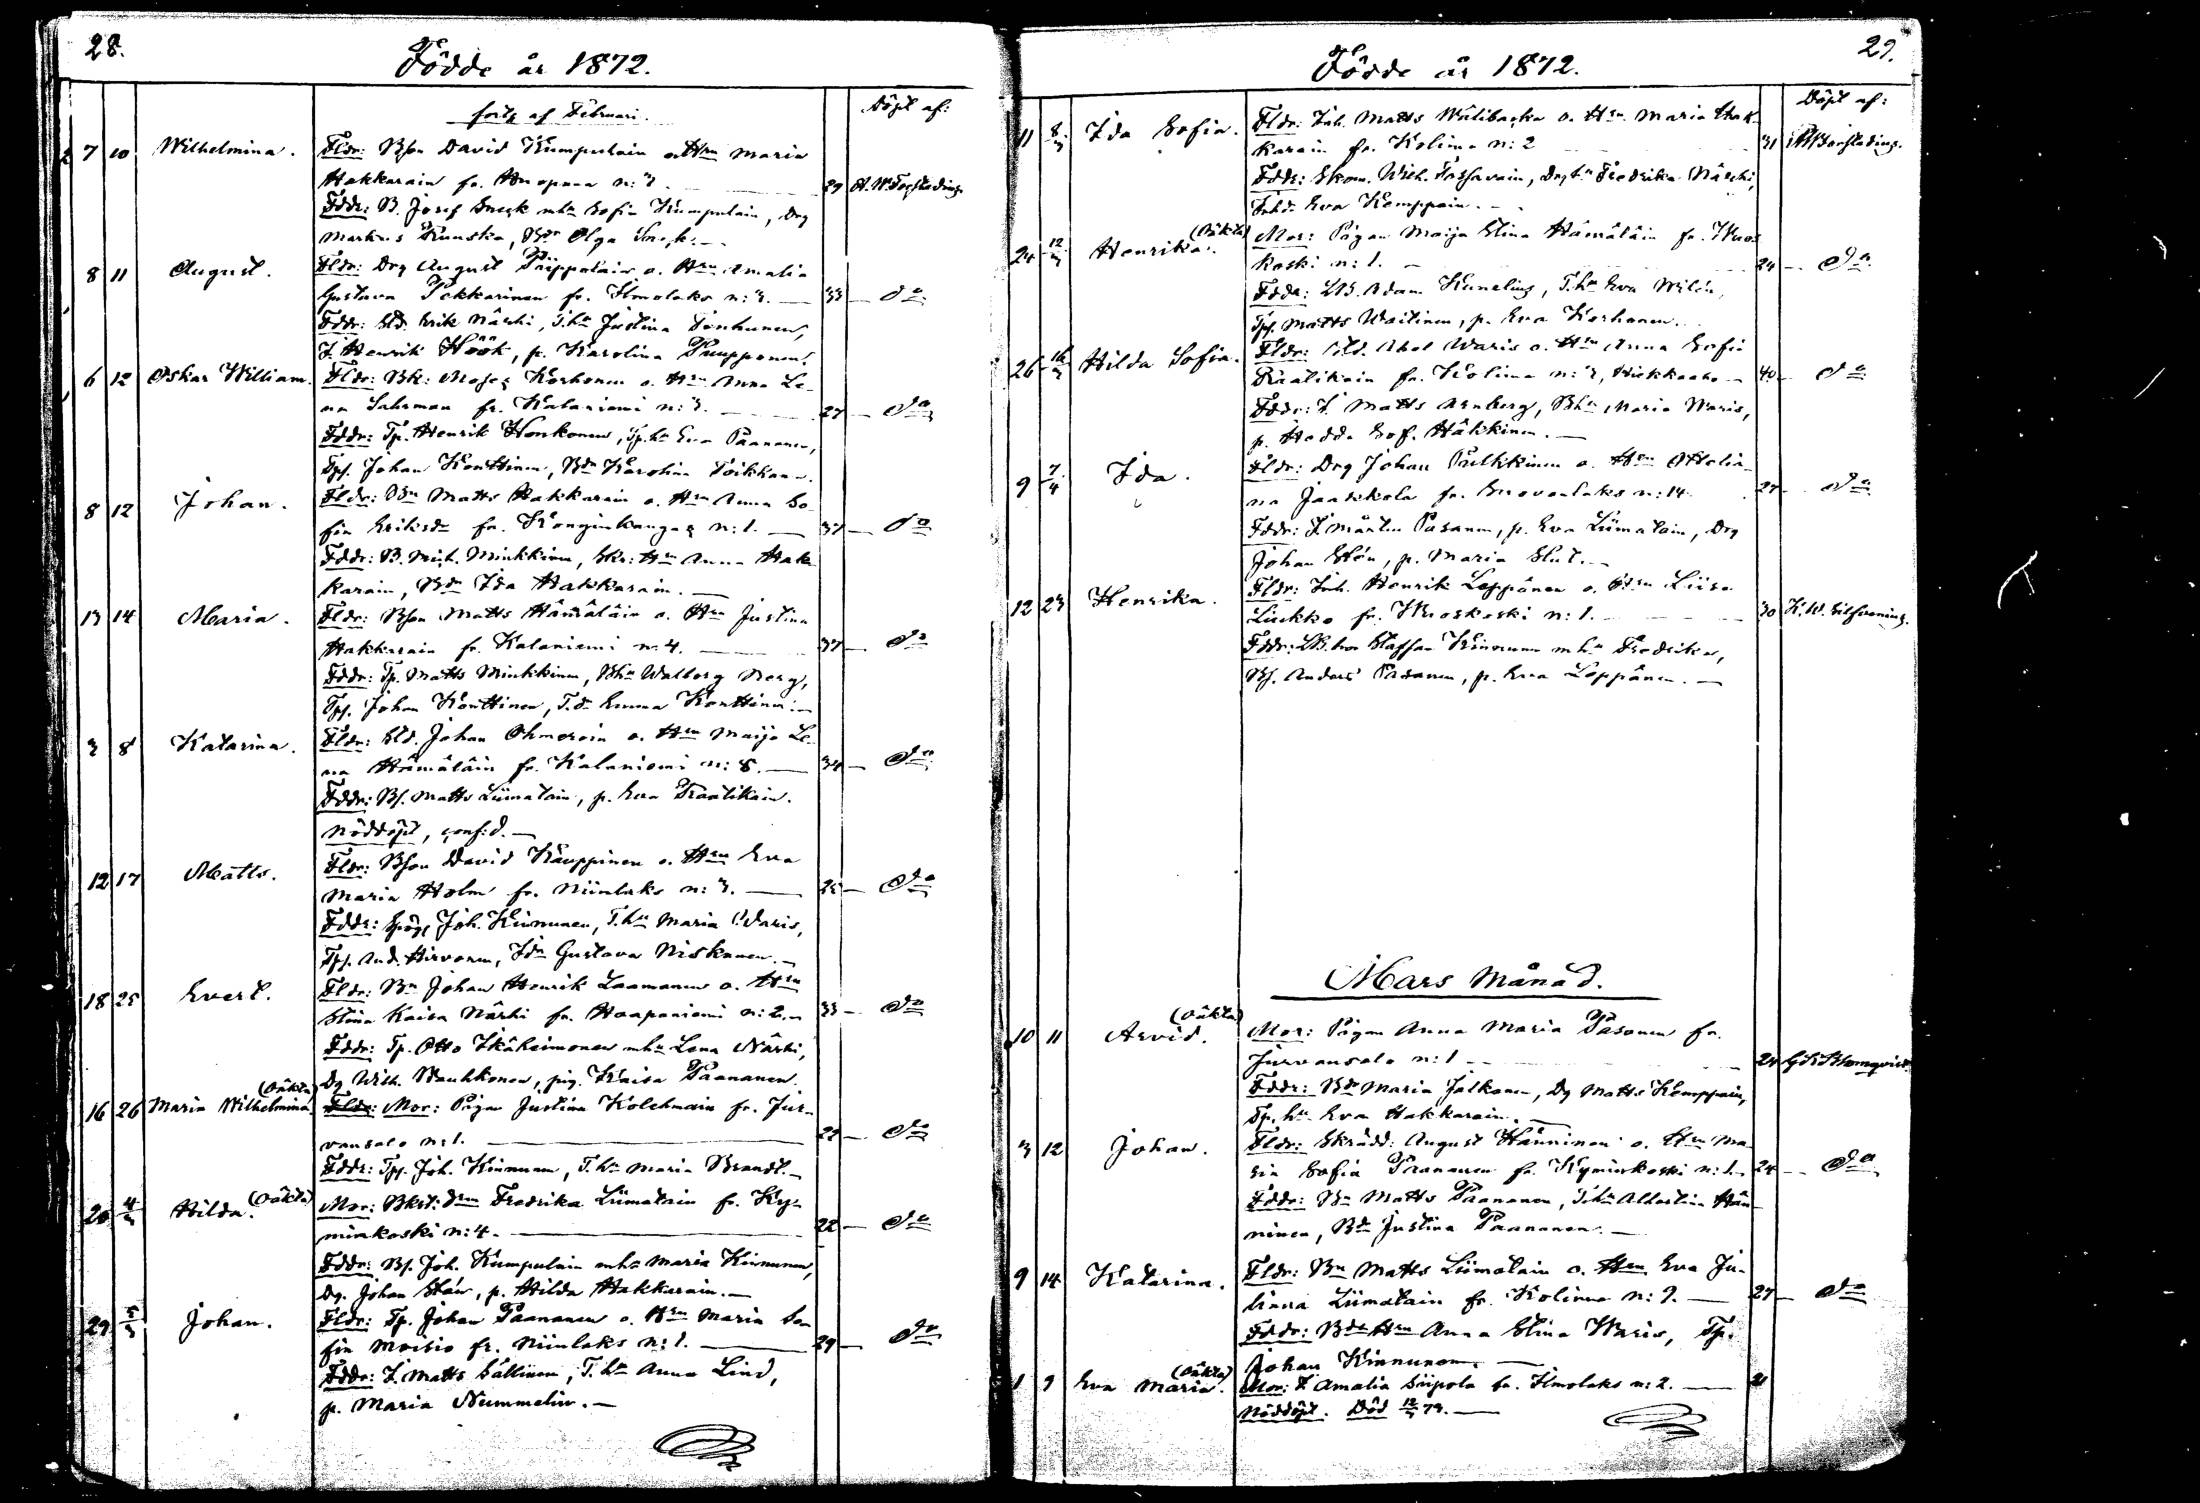 28.
Födde år 1872.
forts af Februari.
Döpt af:
7 10 Wilhelmina. Fldr: Bson David Kumpulain o. Hru Maria
Hakkarain fr. n:3. 29 A. W. Forstadius.
Fddr: B. Josef mhu Sofia Kumpulain, Drg
Markus Kunska, Bdr Olga
8 11 August. Fldr: Drg August Piippolain o. Hru Amalia
Gustava Pekkarinen fr. Ilmolaks n:3. 33 Do
Fddr: Sld. Erik Närhi, T.hu Justina Tenhunen,
I. Henrik Höök, p. Karolina Puupponen.
6 12 Oskar William. Fldr: Bk: Moses Korhonen o. Hru Anna Le-
na Sahrman fr. Kalaniemi n:3. 27 Do
Fddr: Tp. Henrik Honkonen, Tp.hu Eva Paananen,
Tps. Johan Konttinen, Bdr Karolina Poikkan.
8 12 Johan. Fldr: Bn Matts Hakkarain o. Hru Anna So-
fia Eriksdr fr. Konginkangas n:1. 37 Do
Fddr: B. Mich. Minkkinen, Skr: Hru Anna Hak-
karain, Bdr Ida Hakkarain.
13 14 Maria. Fldr: Bson Matts Hämäläin o. Hru Justina
Hakkarain fr. Kalaniemi n:4. 37 Do
Fddr: Tp. Matts Minkkinen, Bhu Walborg Norg,
Tps. Johan Konttinen, T.dr Emma Konttinen.
3 8 Katarina. Fldr: Sld. Johan Ohmeroin o. Hru Maija Le-
na Hämäläin fr. Kalaniemi n:8. 34 Do
Fddr: Bs. Matts Liimatain, p. Eva Praatikain.
Nöddöpt, conf:d.
12 17 Matts. Fldr: Bson David Kauppinen o. Hru Eva
Maria Holm fr. Niinlaks n:3. 25 Do
Fddr: Joh. Kinnunen, T.hu Maria Waris,
Tps. And. Hirvonen, Idr Gustava Niskanen.
18 25 Evert. Fldr: Bn Johan Henrik Laamanen o. Hru
Stina Kaisa Närhi fr. Haapaniemi n:2. 33 Do
Fddr: Tp. Otto Ikäheimonen mhu Lena Närhi,
Dg Wilh. Kauhkonen, pig. Kaisa Paananen.
16 26 Maria Wilhelmina (oäkta) Fldr: Mor: Pigan Justina Kolehmain fr. Jur-
vansalo n:1. 22 Do
Fddr: Tps. Joh. Kinnunen, T.hu Maria Brandt.
26 4/3 Hilda. (oäkta) Mor: Fredrika Liimatain fr. Ky-
minkoski n:4. 22 Do
Fddr: Bs. Joh. Kumpulain mhu Maria Kinnunen,
Dg. Johan Sten, p. Hilda Hakkarain.
29 5/3 Johan. Fldr: Tp. Johan Paananen o. Hru Maria So-
fia Moisio fr. Niinlaks n:1. 29 Do
Fddr: I. Matts Sällinen, T.hu Anna Lind,
p. Maria Nummelin.
29.
Födde år 1872.
Döpt af:
11 8/3 Ida Sofia. Fldr: Inh. Matts Wälibacka o. Hru Maria Hak-
karain fr. Kolima n:2 31
Fddr: Wilh. Tossavain, Fredrika Närhi,
Eva Kemppain.
24 12/3 Henrika. (oäkta) Mor: Pigan Maija Stina Hämäläin fr. Kuos-
koski n:1. 24 Do
Fddr: Adam Kunelius, T.hu Eva Wilén,
Tps. Matts Waitinen, p. Eva Korhonen.
26 16/3 Hilda Sofia. Fldr: Sld. Abel Waris o. Hru Anna Sofia
Praatikain fr. Kolima n:3, Hiekkaaho 40 Do
Fddr: I. Matts Arnberg, Bhu Maria Waris,
p. Hedda Sof. Häkkinen.
9 7/4 Ida. Fldr: Drg Johan Pulkkinen o. Hru Otteliа-
na Jaakkola fr. Suovanlaks n:14. 27 Do
Fddr: I. Mårten Pasanen, p. Eva Liimatain, Drg
Johan Sten, p. Maria Slut.
12 23 Henrika. Fldr: Inh. Henrik Leppänen o. Hru Liisa
Liukko fr. Kuoskoski n:1. 30
Fddr: Staffan Kinnunen mhu Fredrika,
Bs. Anders Pasanen, p. Eva Leppänen.
Mars Månad.
10 11 Arvid. (oäkta) Mor: Pigan Anna Maria Pasanen fr.
Jurvansalo n:1 24 Blomqvist.
Fddr: Bdr Maria Jalkanen, Dg Matts Kemppain,
Tp. hu Eva Hakkarain.
3 12 Johan. Fldr: Skrädd: August Hänninen o. Hru Ma-
ria Sofia Paananen fr. Kyminkoski n:1. 24 Do
Fddr: Bn Matts Paananen, T.hu Albertina Hän-
ninen, Bdr Justina Paananen.
9 14 Katarina. Fldr: Bn Matts Liimatain o. Hru Eva Ju-
liana Liimatain fr. Kolima n:9. 27 Do
Fddr: Hru Anna Stina Waris, Tp.
Johan Kinnunen.
1 9 Eva Maria. (oäkta) Mor: I. Amalia Siipola fr. Ilmolaks n:2. 21
Nöddöpt. Död